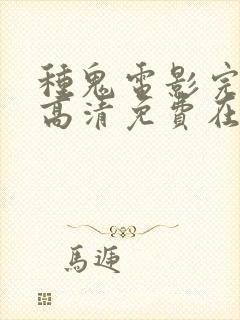 種鬼電影完
高清免費在
馬逓